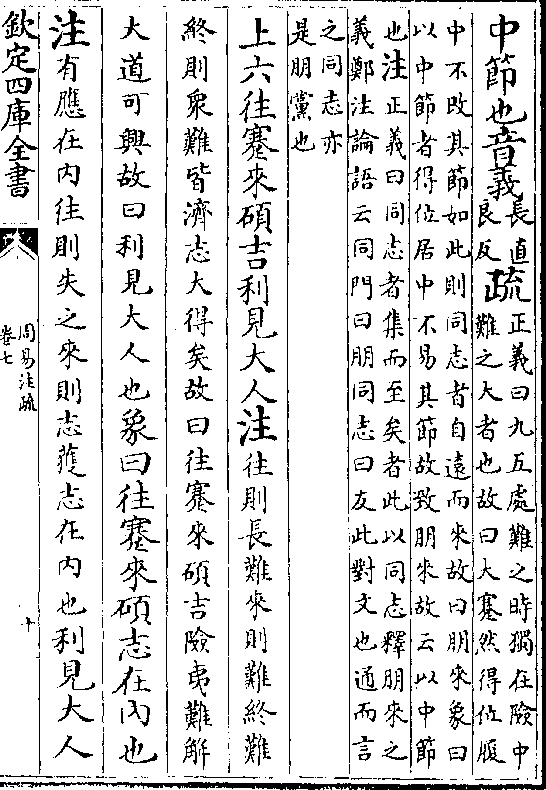 中節也音義長直
良反疏正義曰九五處難之時獨在險中
難之大者也故曰大蹇然得位履
中不改其節如此則同志者自遠而來故曰朋來象曰
以中節者得位居中不易其節故致朋來故云以中節
也注正義曰同志者集而至矣者此以同志釋朋來之
義鄭注論語云同門曰朋同志曰友此對文也通而言
之同志亦
是朋黨也
上六往蹇來碩吉利見大人注往則長難來則難終難
終則衆難皆濟志大得矣故曰往蹇來碩吉險夷難解
大道可興故曰利見大人也象曰往蹇來碩志在內也
注有應在内往則失之來則志獲志在内也利見大人
欽定四庫全書
周易注疏
卷七
十